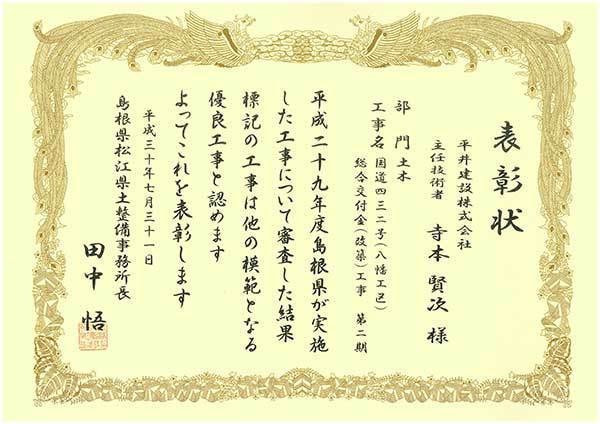 表彰状
平井建設株式会社
主任技術者 寺本 賢次 様
部門 土木
工事名 国道四三二号(八幡工区)
総合交付金(改築)工事 第二期
平成二十九年度島根県が実施
した工事について審査した結果
標記の工事は他の模範となる
優良工事と認めます
よってこれを表彰します
平成三十年七月三十一日
島根県松江県土整備事務所長
田中 悟